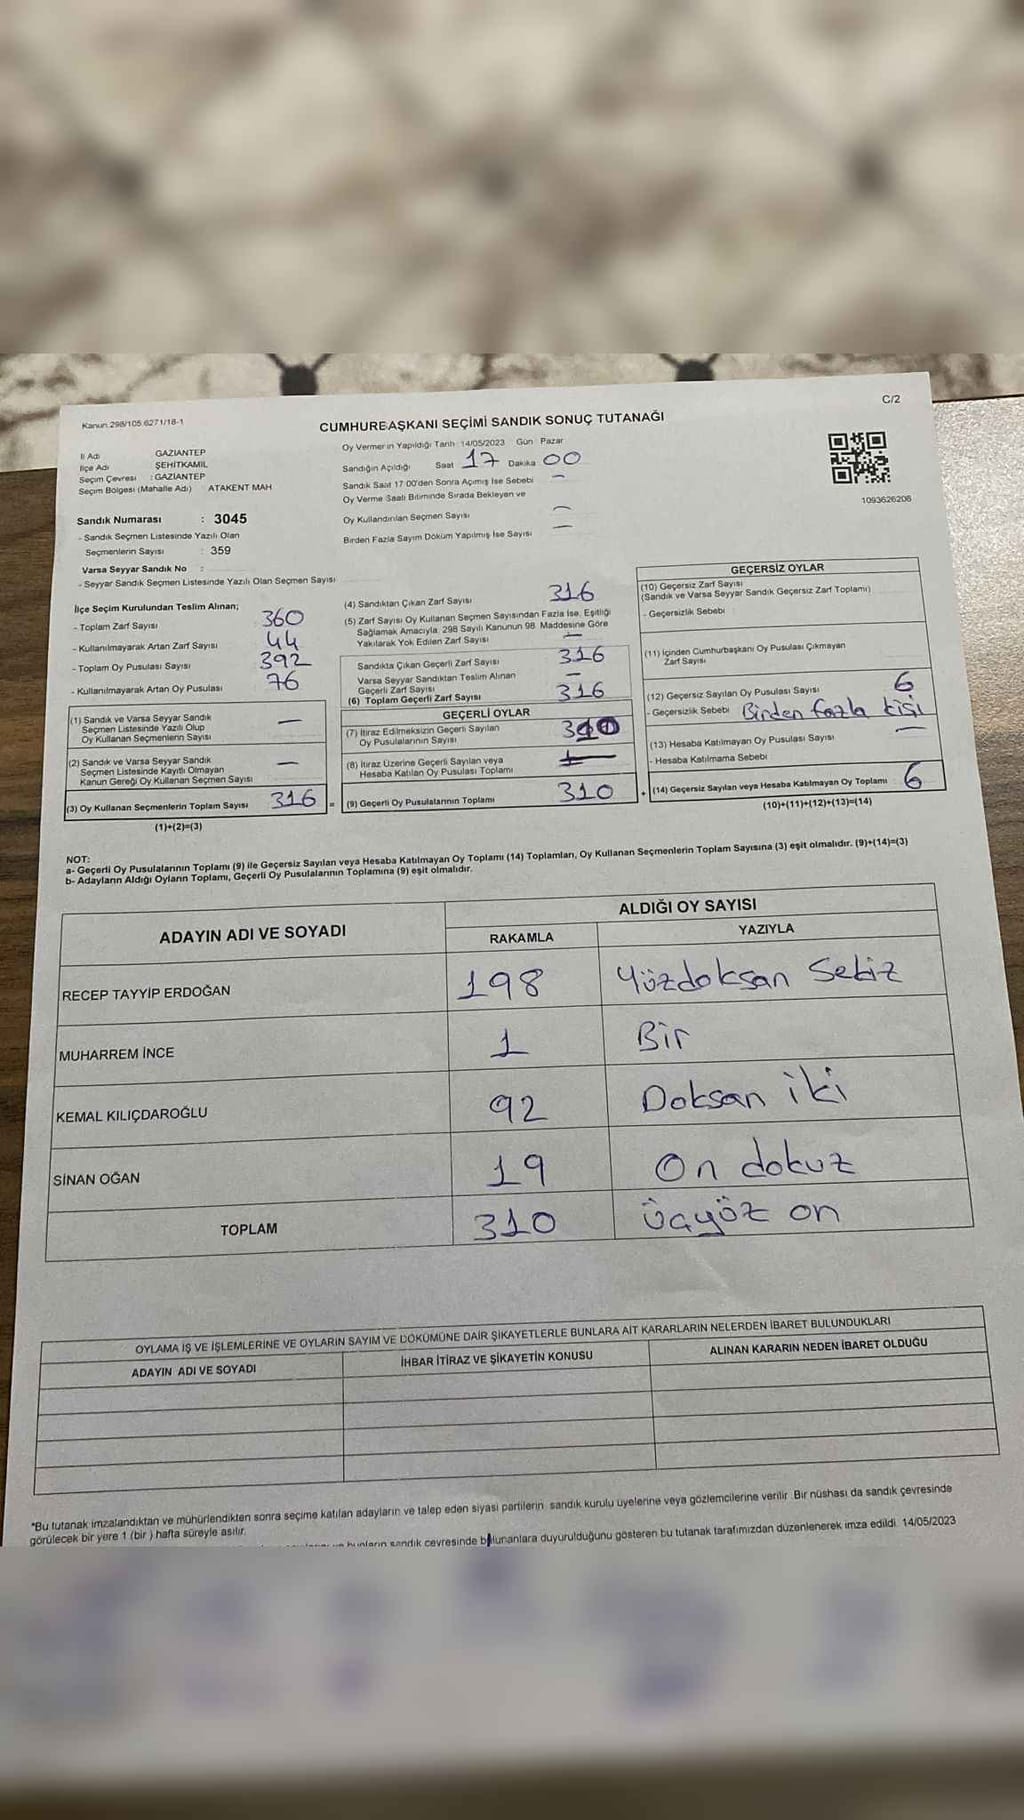 C/2
Kanun.298/105.6271/18-1
CUMHURBAŞKANI SEÇİMİ SANDIK SONUÇ TUTANAĞI
İl Adı GAZİANTEP
İlçe Adı ŞEHİTKAMİL
Seçim Çevresi : GAZİANTEP
Seçim Bölgesi (Mahalle Adı) ATAKENT MAH
Oy Vermenin Yapıldığı Tarih 14/05/2023 Gün Pazar
Sandığın Açıldığı Saat 17 Dakika 00
Sandık Saat 17 00'den Sonra Açımış İse Sebebi -
Oy Verme Saati Bitiminde Sırada Bekleyen ve
Oy Kullandırılan Seçmen Sayısı -
Birden Fazla Sayım Döküm Yapılmış İse Sayısı -
1093626206
Sandık Numarası : 3045
- Sandık Seçmen Listesinde Yazılı Olan
Seçmenlerin Sayısı : 359
Varsa Seyyar Sandık No :
- Seyyar Sandık Seçmen Listesinde Yazılı Olan Seçmen Sayısı
İlçe Seçim Kurulundan Teslim Alınan;
- Toplam Zarf Sayısı 360
- Kullanılmayarak Artan Zarf Sayısı 44
- Toplam Oy Pusulası Sayısı 392
- Kullanılmayarak Artan Oy Pusulası 76
(1) Sandık ve Varsa Seyyar Sandık
Seçmen Listesinde Yazılı Olup
Oy Kullanan Seçmenlerin Sayısı -
(2) Sandık ve Varsa Seyyar Sandık
Seçmen Listesinde Kayıtlı Olmayan
Kanun Gereği Oy Kullanan Seçmen Sayısı -
(3) Oy Kullanan Seçmenlerin Toplam Sayısı 316 =
(1)+(2)=(3)
(4) Sandıktan Çıkan Zarf Sayısı 316
(5) Zarf Sayısı Oy Kullanan Seçmen Sayısından Fazla İse, Eşitliği
Sağlamak Amacıyla, 298 Sayılı Kanunun 98. Maddesine Göre
Yakılarak Yok Edilen Zarf Sayısı -
Sandıkta Çıkan Geçerli Zarf Sayısı 316
Varsa Seyyar Sandıktan Teslim Alınan
Geçerli Zarf Sayısı -
(6) Toplam Geçerli Zarf Sayısı 316
GEÇERLİ OYLAR
(7) İtiraz Edilmeksizin Geçerli Sayılan
Oy Pusulalarının Sayısı
(8) İtiraz Üzerine Geçerli Sayılan veya
Hesaba Katılan Oy Pusulası Toplamı
(9) Geçerli Oy Pusulalarının Toplamı 310 +
GEÇERSİZ OYLAR
(10) Geçersiz Zarf Sayısı
(Sandık ve Varsa Seyyar Sandık Geçersiz Zarf Toplamı)
- Geçersizlik Sebebi
(11) İçinden Cumhurbaşkanı Oy Pusulası Çıkmayan
Zarf Sayısı
(12) Geçersiz Sayılan Oy Pusulası Sayısı 6
- Geçersizlik Sebebi Birden fazla kişi
(13) Hesaba Katılmayan Oy Pusulası Sayısı -
- Hesaba Katılmama Sebebi
(14) Geçersiz Sayılan veya Hesaba Katılmayan Oy Toplamı 6
(10)+(11)+(12)+(13)=(14)
NOT:
a- Geçerli Oy Pusulalarının Toplamı (9) ile Geçersiz Sayılan veya Hesaba Katılmayan Oy Toplamı (14) Toplamları, Oy Kullanan Seçmenlerin Toplam Sayısına (3) eşit olmalıdır. (9)+(14)=(3)
b- Adayların Aldığı Oyların Toplamı, Geçerli Oy Pusulalarının Toplamına (9) eşit olmalıdır.
ADAYIN ADI VE SOYADI
ALDIĞI OY SAYISI
RAKAMLA YAZIYLA
RECEP TAYYİP ERDOĞAN 198 Yüzdoksan Sekiz
MUHARREM İNCE 1 Bir
KEMAL KILIÇDAROĞLU 92 Doksan iki
SİNAN OĞAN 19 On dokuz
TOPLAM 310 üçyöz on
OYLAMA İŞ VE İŞLEMLERİNE VE OYLARIN SAYIM VE DÖKÜMÜNE DAİR ŞİKAYETLERLE BUNLARA AİT KARARLARIN NELERDEN İBARET BULUNDUKLARI
ADAYIN ADI VE SOYADI İHBAR İTİRAZ VE ŞİKAYETİN KONUSU ALINAN KARARIN NEDEN İBARET OLDUĞU
*Bu tutanak imzalandıktan ve mühürlendikten sonra seçime katılan adayların ve talep eden siyasi partilerin sandık kurulu üyelerine veya gözlemcilerine verilir. Bir nüshası da sandık çevresinde
görülecek bir yere 1 (bir) hafta süreyle asılır.
bunların sandık çevresinde bulunanlara duyurulduğunu gösteren bu tutanak tarafımızdan düzenlenerek imza edildi. 14/05/2023